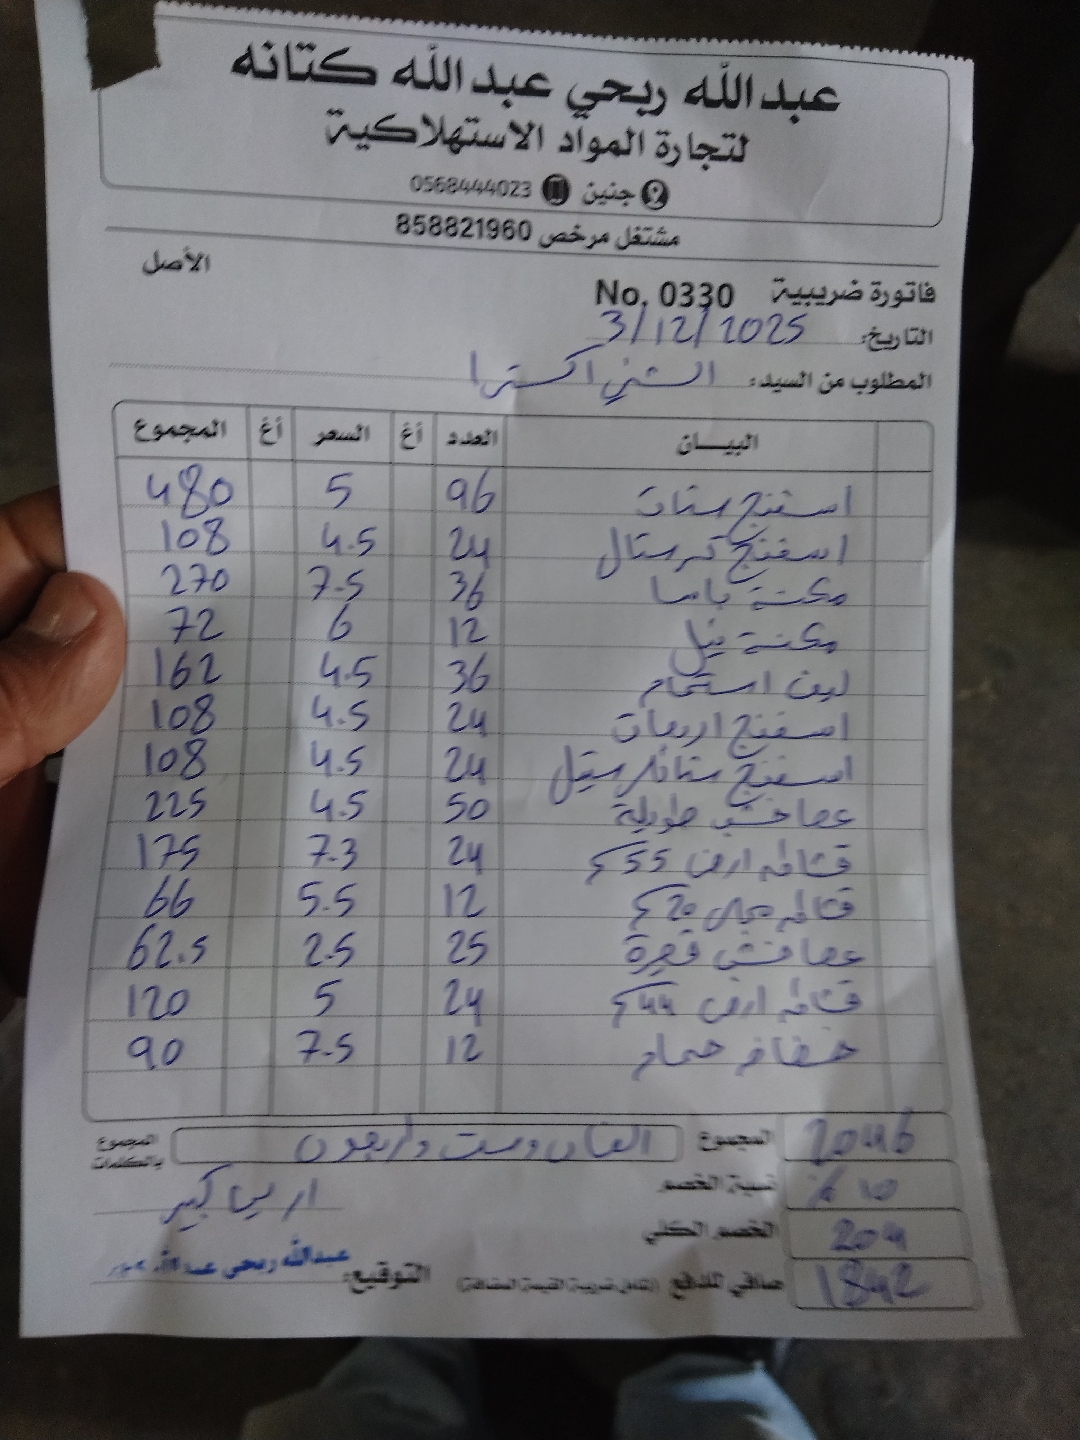 عبدالله ربحي عبدالله كتانه
لتجارة المواد الاستهلاكية
جنين 0568444023
مشتغل مرخص 858821960
الأصل
فاتورة ضريبية No. 0330
التاريخ: 3/12/2025
المطلوب من السيد: الشني اكسترا
البيـــان العدد أغ السعر أغ المجموع
اسفنج ستات 96 5 480
اسفنج كرستال 24 4.5 108
مكنسة باسا 36 7.5 270
مكنسة نيل 12 6 72
ليف استحمام 36 4.5 162
اسفنج اربعات 24 4.5 108
اسفنج ستانلس ستيل 24 4.5 108
عصا خشب طويلة 50 4.5 225
قشاطه ارض 55 24 7.3 175
قشاطه مجلى 20 12 5.5 66
عصا قصيرة 25 2.5 62.5
قشاطه ارض 44 24 5 120
حمام 12 7.5 90
المجموع 2046
المجموع بالكلمات الفان وست واربعون
نسبة الخصم 10 %
الخصم الكلي 204
صافي للدفع (شامل ضريبة القيمة المضافة) 1842
التوقيع: عبدالله ربحي